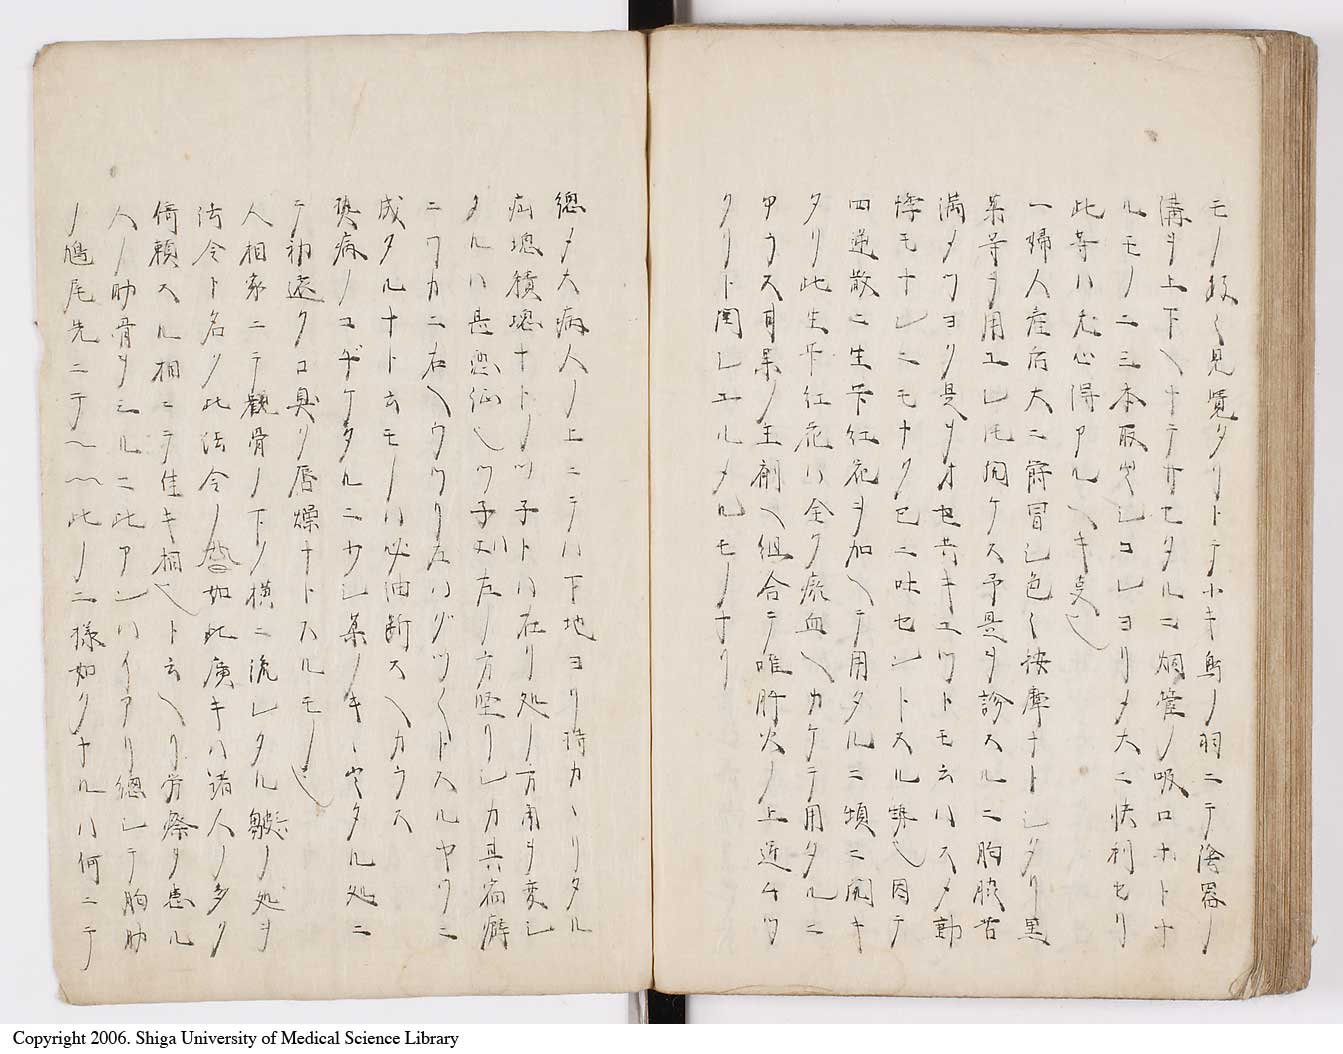 モノ按〻見覧タリトテ小キ鳥ノ羽ニテ陰器ノ
溝ヲ上下ヘナテサセタルニ烟管ノ吸口ホトナ
ルモノ二三本取出シコレヨリメ大ニ快利セリ
此等ハ尤心得アルヘキ支也
一婦人産后大ニ欝冒シ色〻按摩ナトシタリ黒
薬等ヲ用エレ𪜈開ケス予是ヲ診スルニ胸腋苦
満メツヨク是ヲオセ共キユツトモ云ハスメ動
悸モナシニモナク已ニ吐セントスル勢也因テ
四逆散ニ生芐紅花ヲ加ヘテ用タルニ頓ニ開キ
タリ此生芐紅花ハ全ク瘀血ヘカケテ用タルニ
アラス有余ノ主剤ヘ組合ニテ唯肝火ノ上迫ヲツ
クリト図シユルメルモノナリ
總メ大病人ノ上ニテハ下地ヨリ持カヽリタル
疝塊積塊ナトノツ子トハ在リ処ノ方角ヲ変シ
タルハ甚悪シ也ツ子ハ左ノ方堅リシカ具宿癖
ニワカニ右ヘウツリ又ハグツ〱トスルヤウニ
成タルナト云モノハ必油断スヘカラス
熱病ノコヂケタルニサシ薬ノキヽ定タル処ニ
テ初遠ク口臭リ唇燥ナトスルモノ也
人相家ニテ觀骨ノ下ノ横ニ流レタル皺ノ処ヲ
法令ト名ク此法令ノ如此廣キハ諸人ノ多ク
倚頼スル相ニテ佳キ相也ト云ヘリ労瘵ヲ患ル
人ノ肋骨ヲミルニ此アンハイアリ總シテ胸肋
ノ鳩尾先ニテ〜〜此ノ二様如クナルハ何ニテ
Copyright 2006. Shiga University of Medical Science Library